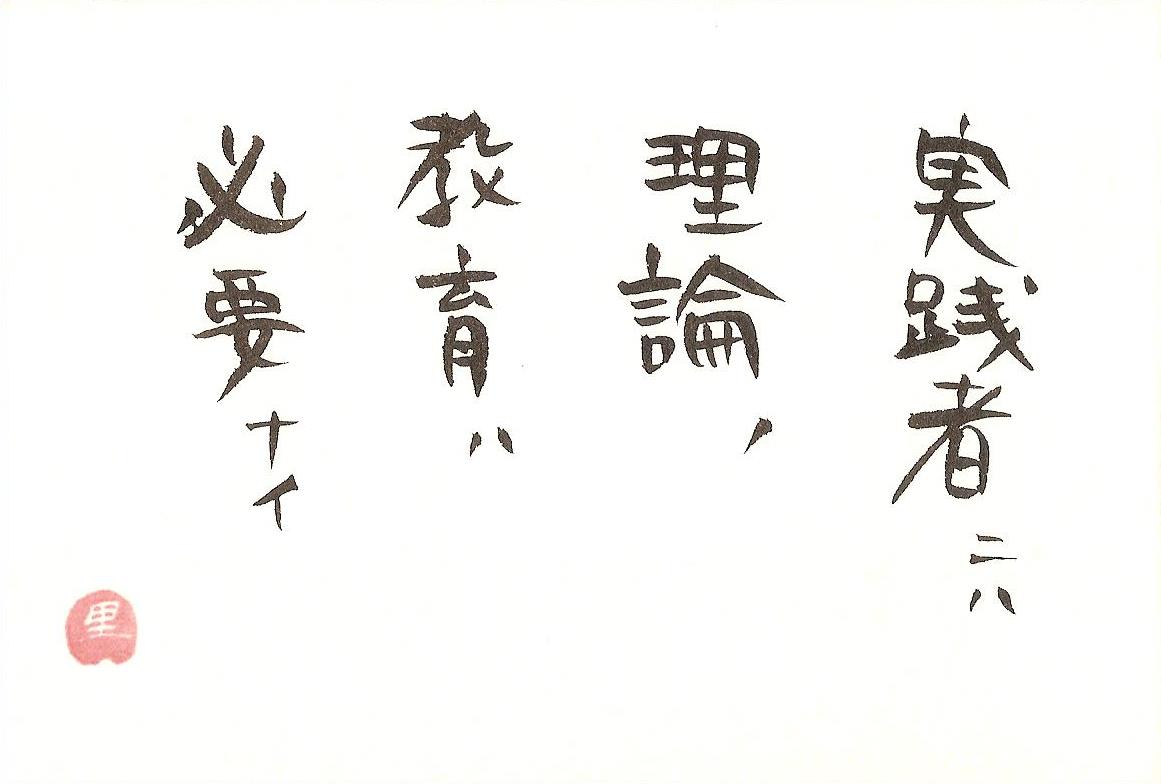 実践者ニハ
理論ノ
教育ハ
必要ナイ
里